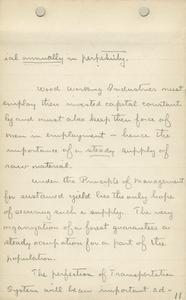 ial annually in perpetuity.
Wood Working Industries must
employ their invested capital constant
ly and must also keep their force of
men in employment - hence the
importance of a steady supply of
raw material.
Under the Principle of Management
for sustained yield lies the only hope
of securing such a supply. The very
organization of a forest guarantees a
steady occupation for a part of the
population.
The perfection of Transportation
System will be an important ad-
11